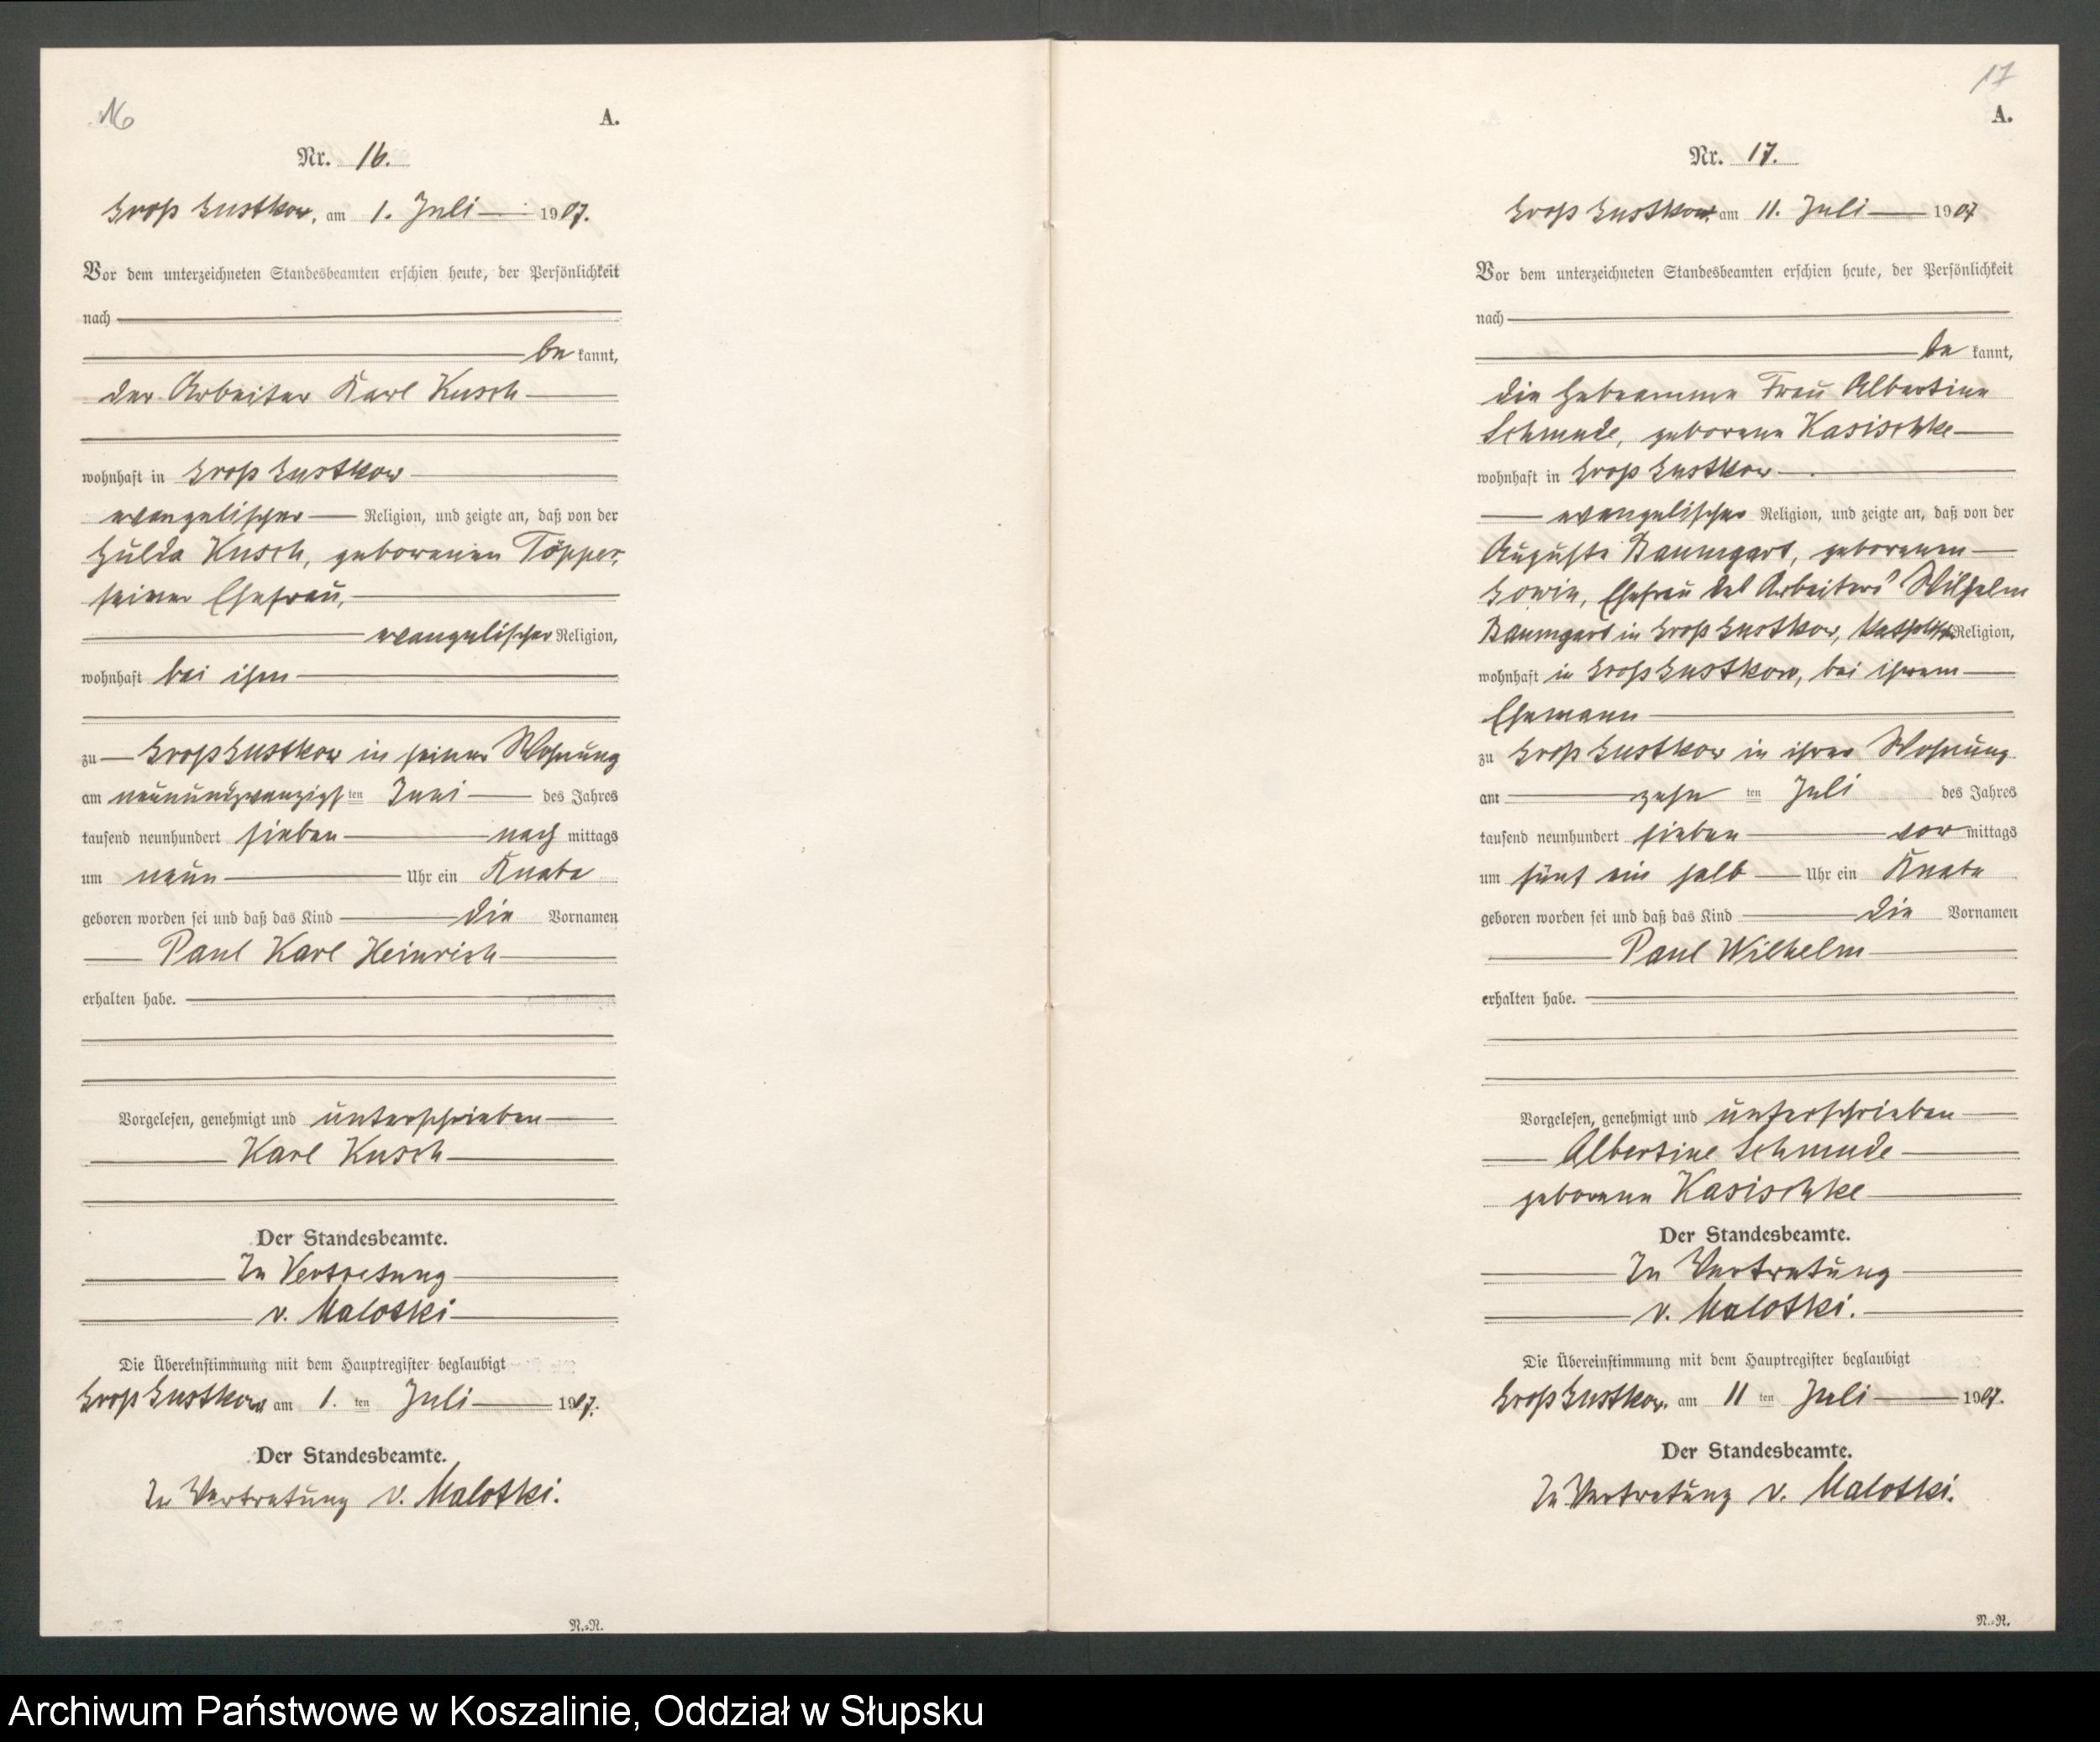 16
A.
Nr. 16.
Groß Gustkow, am 1. Juli 1907.
Vor dem unterzeichneten Standesbeamten erschien heute, der Persönlichkeit
nach
be kannt,
der Arbeiter Karl Kusch
wohnhaft in Groß Gustkow
evangelischer Religion, und zeigte an, daß von der
Hulda Kusch, geborenen Töpper,
seiner Ehefrau,
evangelischer Religion,
wohnhaft bei ihm
zu Groß Gustkow in seiner Wohnung
am neunundzwanzigsten Juni des Jahres
tausend neunhundert sieben nach mittags
um neun Uhr ein Knabe
geboren worden sei und daß das Kind die Vornamen
Paul Karl Heinrich
erhalten habe.
Vorgelesen, genehmigt und unterschrieben
Karl Kusch
Der Standesbeamte.
In Vertretung
v. Malotki
Die Übereinstimmung mit dem Hauptregister beglaubigt
Groß Gustkow am 1. ten Juli 1907.
Der Standesbeamte.
In Vertretung v. Malotki.
N.-N.
17
A.
Nr. 17.
Groß Gustkow. am 11. Juli 1907
Vor dem unterzeichneten Standesbeamten erschien heute, der Persönlichkeit
nach
be kannt,
die Hebeamme Frau Albertine
Schmude, geborene Kasischke
wohnhaft in Groß Gustkow
evangelischer Religion, und zeigte an, daß von der
Auguste Baumgart, geborenen
Ehefrau des Arbeiters Wilhelm
Baumgart in Groß Gustkow, kathol. Religion,
wohnhaft in Groß Gustkow, bei ihrem
Ehemann
zu Groß Gustkow in ihrer Wohnung
am zehn ten Juli des Jahres
tausend neunhundert sieben vor mittags
um fünf ein halb Uhr ein Knabe
geboren worden sei und daß das Kind die Vornamen
Paul Wilhelm
erhalten habe.
Vorgelesen, genehmigt und unterschrieben
Albertine Schmude
geborene Kasischke
Der Standesbeamte.
In Vertretung
v. Malotki.
Die Übereinstimmung mit dem Hauptregister beglaubigt
Groß Gustkow. am 11 ten Juli 1907.
Der Standesbeamte.
In Vertretung v. Malotki.
N.-N.
Archiwum Państwowe w Koszalinie, Oddział w Słupsku